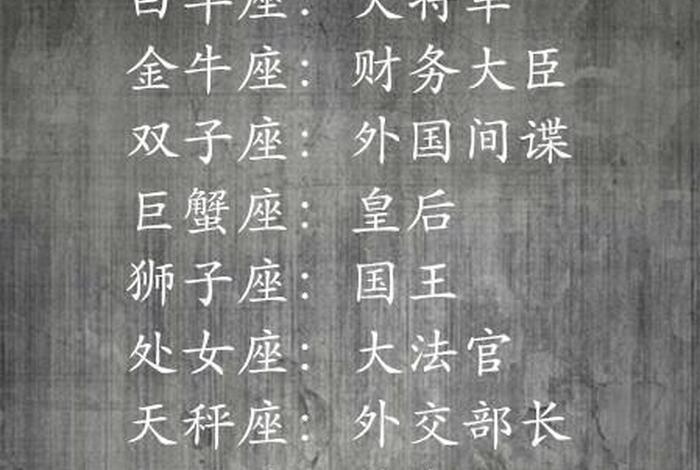 白羊座：大将军
金牛座：财务大臣
双子座：外国间谍
巨蟹座：皇后
狮子座：国王
处女座：大法官
天秤座：外交部长